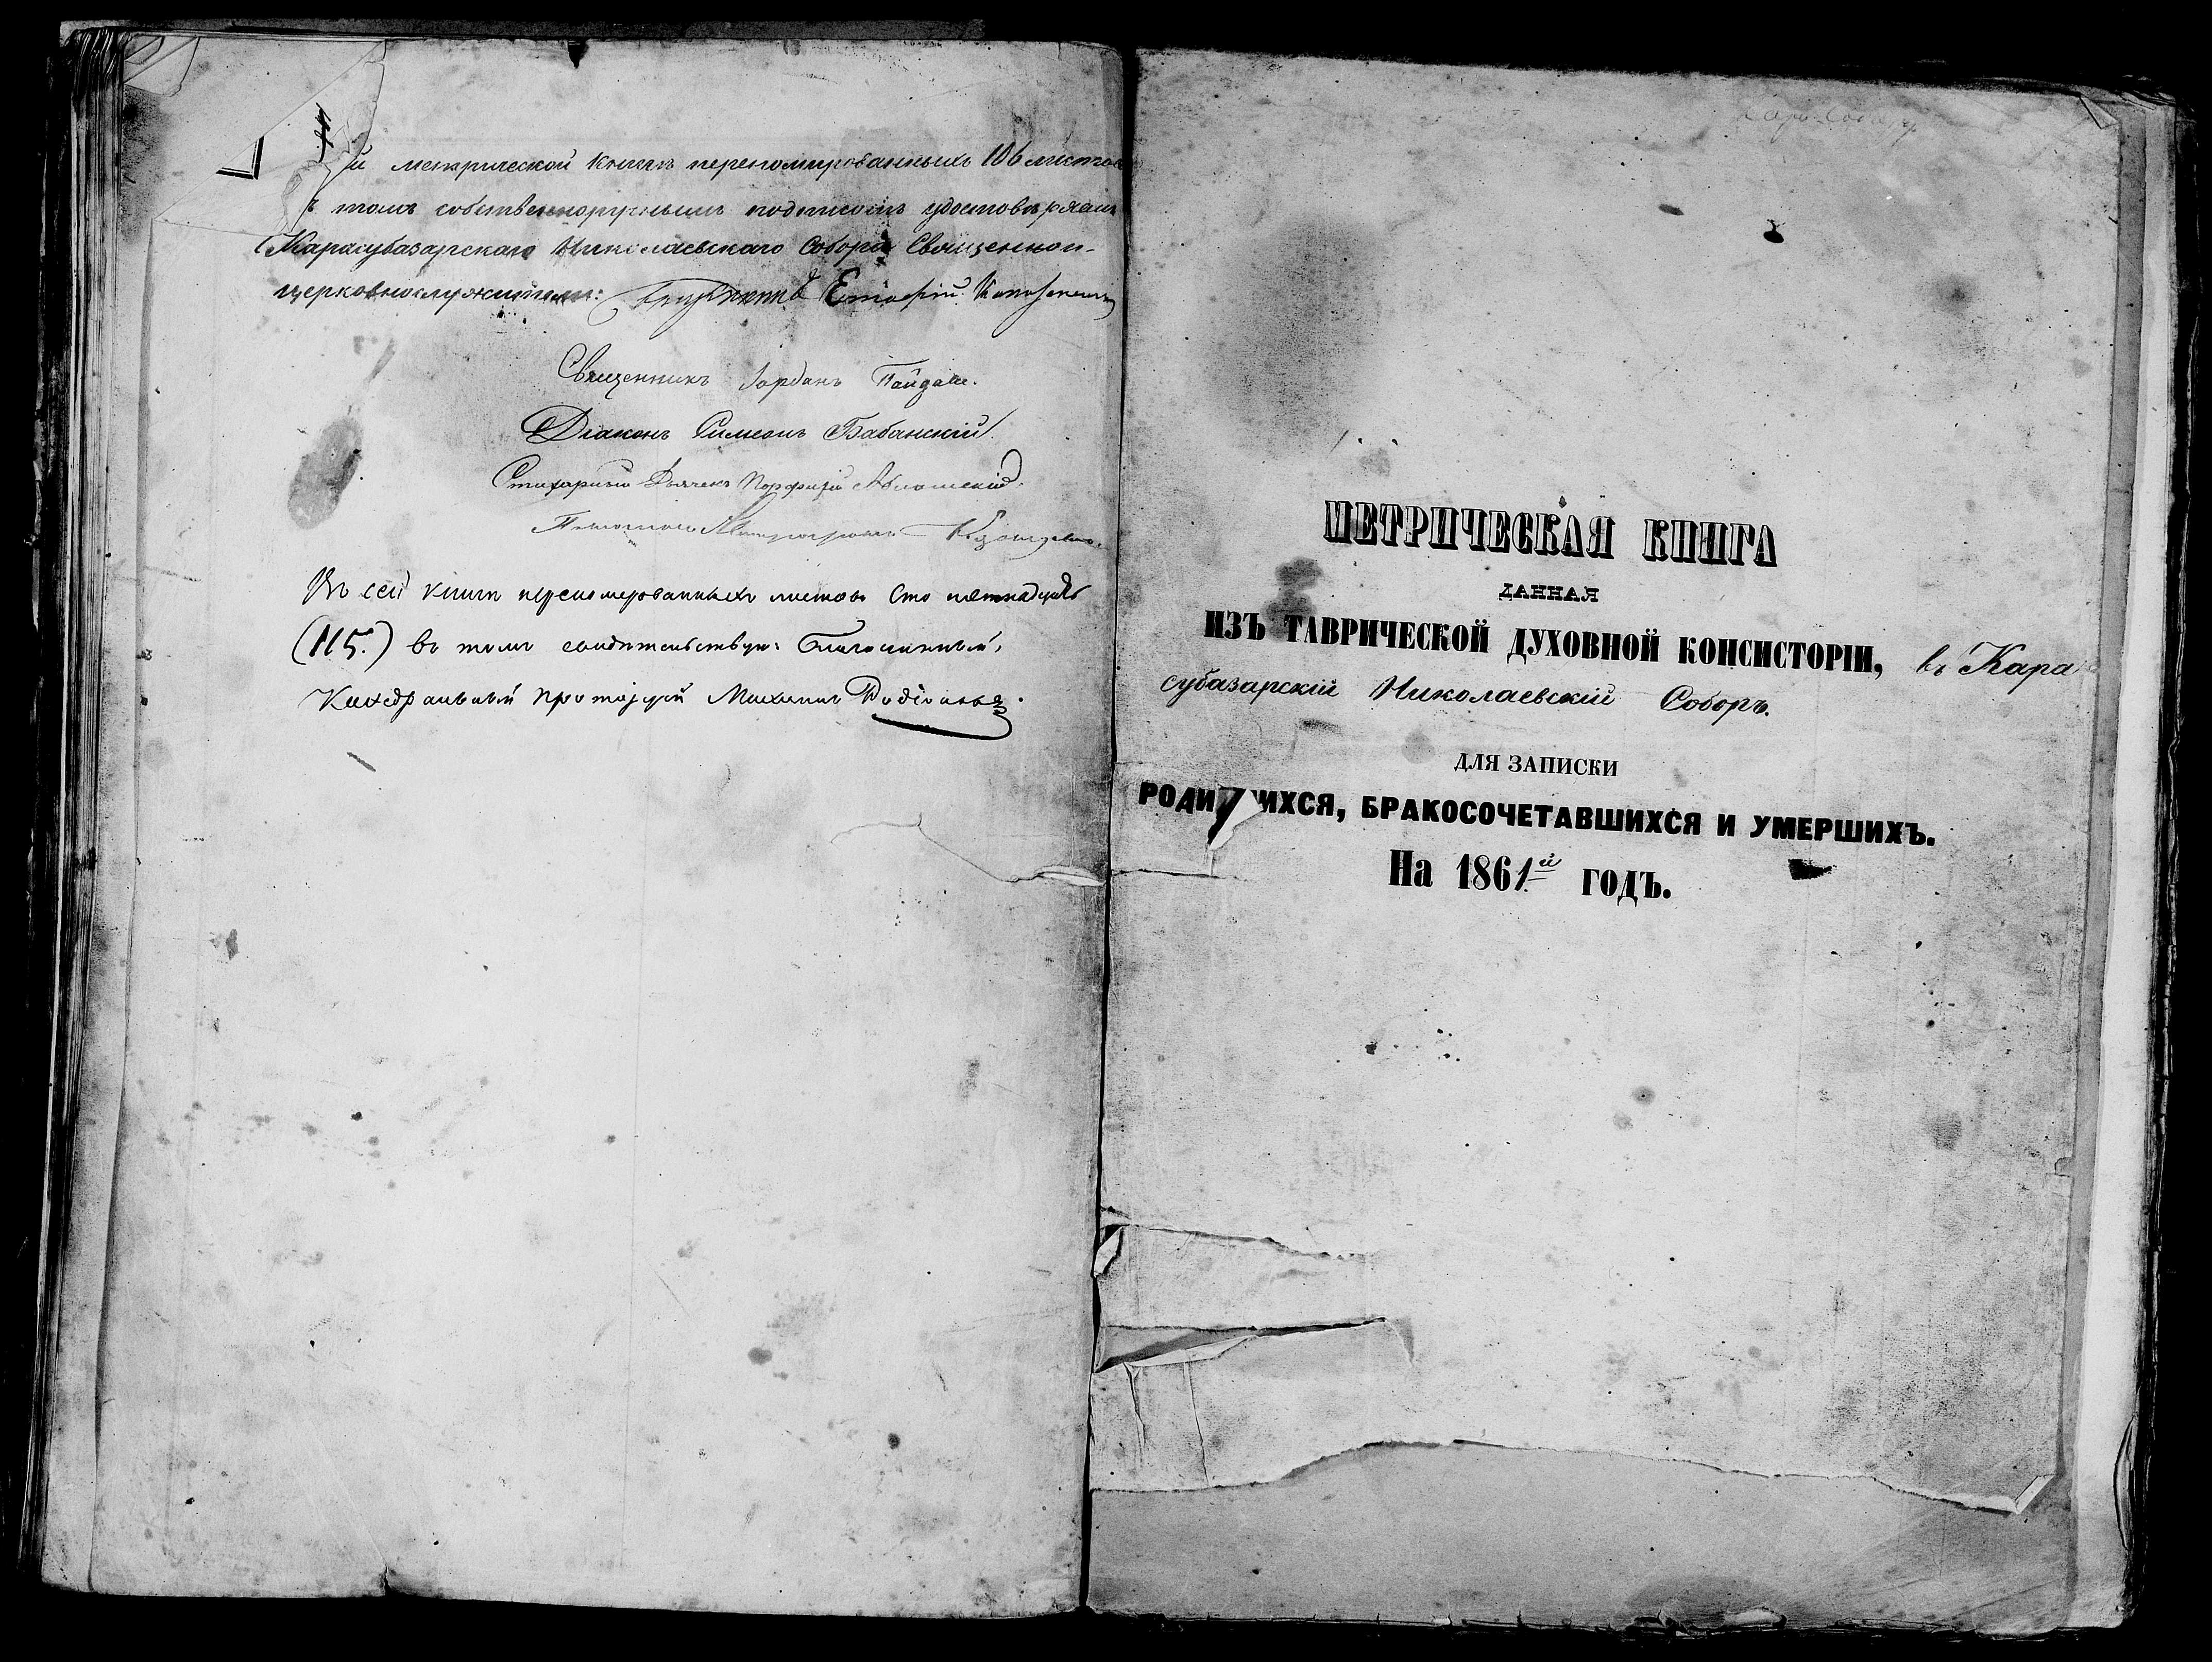 й метрической книгѣ переномированныхъ 106 листовъ
въ томъ собственноручнымъ подписомъ удостовѣряемъ
Карасубазарскаго Николаевскаго Собора Священно и-
церковнослужители:
Священникъ Іорданъ
Діаконъ Симеонъ Бабанскій.
Стихарный Дьячекъ Порфирій
Въ сей книгѣ переномерованныхъ листовъ сто пятнадцать
(115.) въ томъ свидѣтельствую: Благочинный,
Каѳедральный протоіерей Михаилъ Родіоновъ.
МЕТРИЧЕСКАЯ КНИГА
ДАННАЯ
ИЗЪ ТАВРИЧЕСКОЙ ДУХОВНОЙ КОНСИСТОРІИ, въ Кара
субазарскій Николаевскій Соборъ.
ДЛЯ ЗАПИСКИ
РОДИ ШИХСЯ, БРАКОСОЧЕТАВШИХСЯ И УМЕРШИХЪ.
На 1861й ГОДЪ.